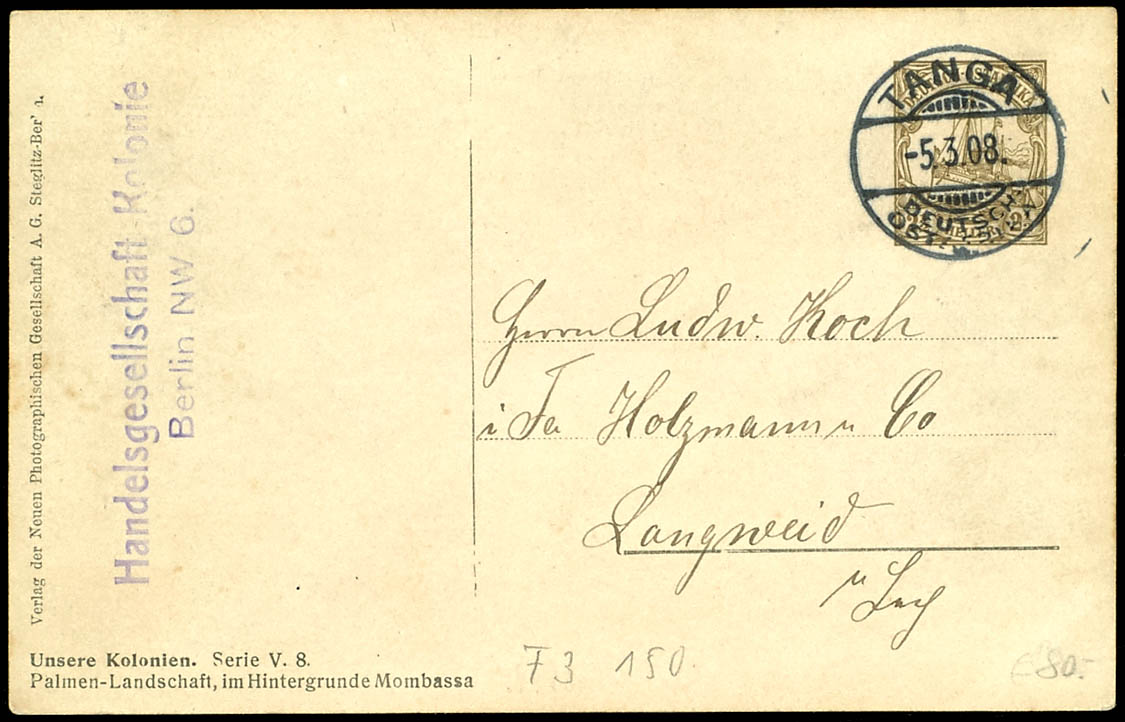 Verlag der Neuen Photographischen Gesellschaft A. G. Steglitz-Ber
Handelsgesellschaft Kolonie
Berlin NW 6.
TANGA
-5.3.08.
DEUTSCH-
OST
Herrn Ludw. Koch
i Fa Holzmann u Co
Langweid
Lech
Unsere Kolonien. Serie V. 8.
Palmen-Landschaft, im Hintergrunde Mombassa
F 3 150
80.-